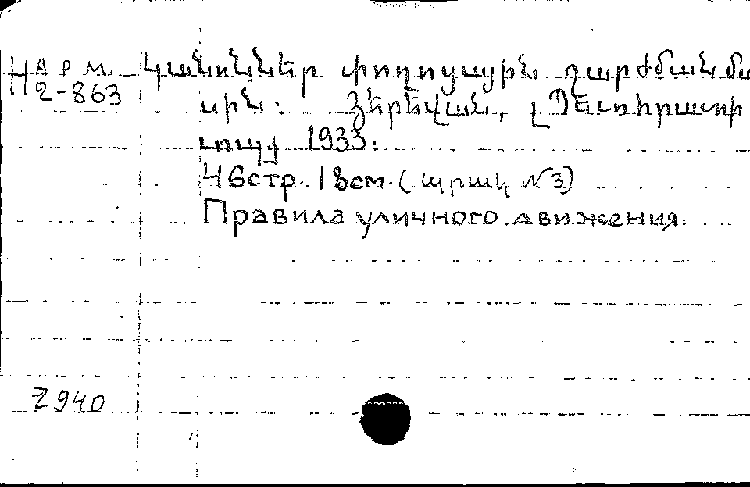 АРМ. Կանոններ փողոցային շարժման մա
Н 2-863 սին: Յերևան, Պետհրատի
1933.
46стр. 18см. (պրակ №3)
Правила уличного движения.
2940